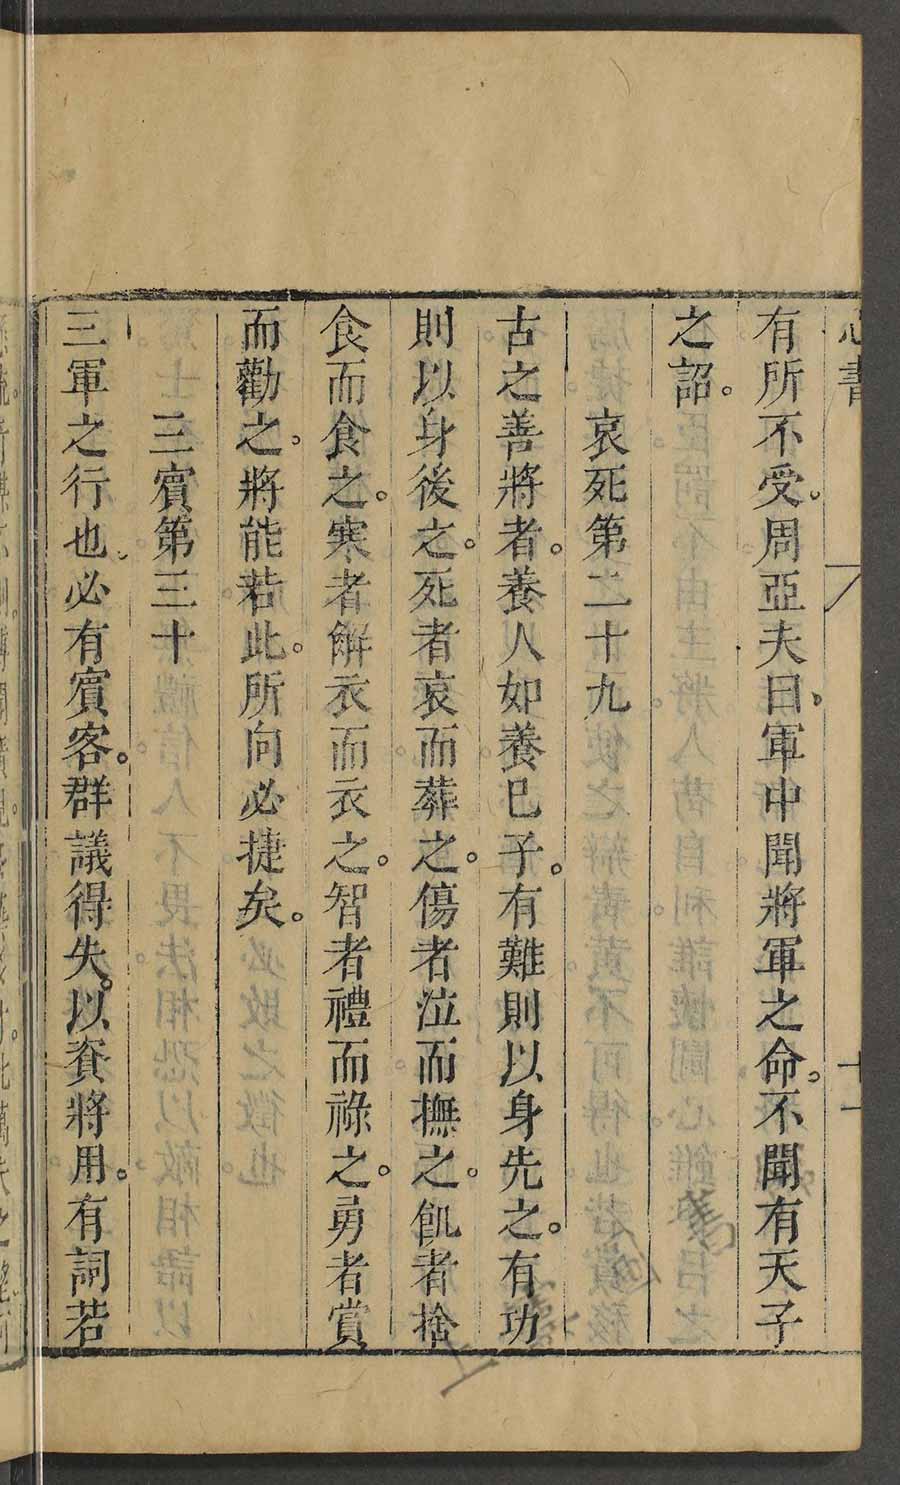 心書
十一
有所不受。周亞夫曰、軍中聞將軍之命。不聞有天子
之詔。
哀死第二十九
古之善將者。養人如養已子。有難則以身先之。有功
則以身後之。死者哀而葬之。傷者泣而撫之。飢者捨
食而食之。寒者觧衣而衣之。智者禮而祿之。勇者賞
而勸之。將能若此。所向必捷矣。
三賔第三十
三軍之行也、必有賔客。群議得失。以資將用。有詞若